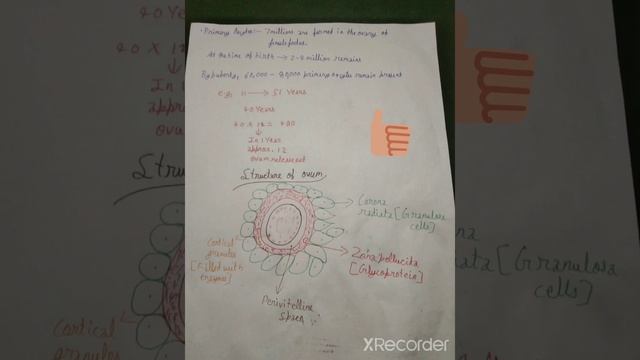 • Primary Oocytes:- 7 millions are formed in the ovary of
female foetus.
At the time of birth → 2-4 million remains
By puberty, 60,000 - 80,000 primary oocytes remain present
e.g. 11 → 51 Years
40 Years
40 x 12 = 480
↓
In 1 Year
approx. 12
ovum release out
Structure of ovum
Corona
radiata [Granulosa
cells]
Cortical
granules
[Filled with
enzymes]
Zona pellucita
[Glycoprotein]
Perivitelline
space
40 Years
40 x 12
↓
In 1
appro
ovum
Cortical
granules
Granulosa
cells]
XRecorder